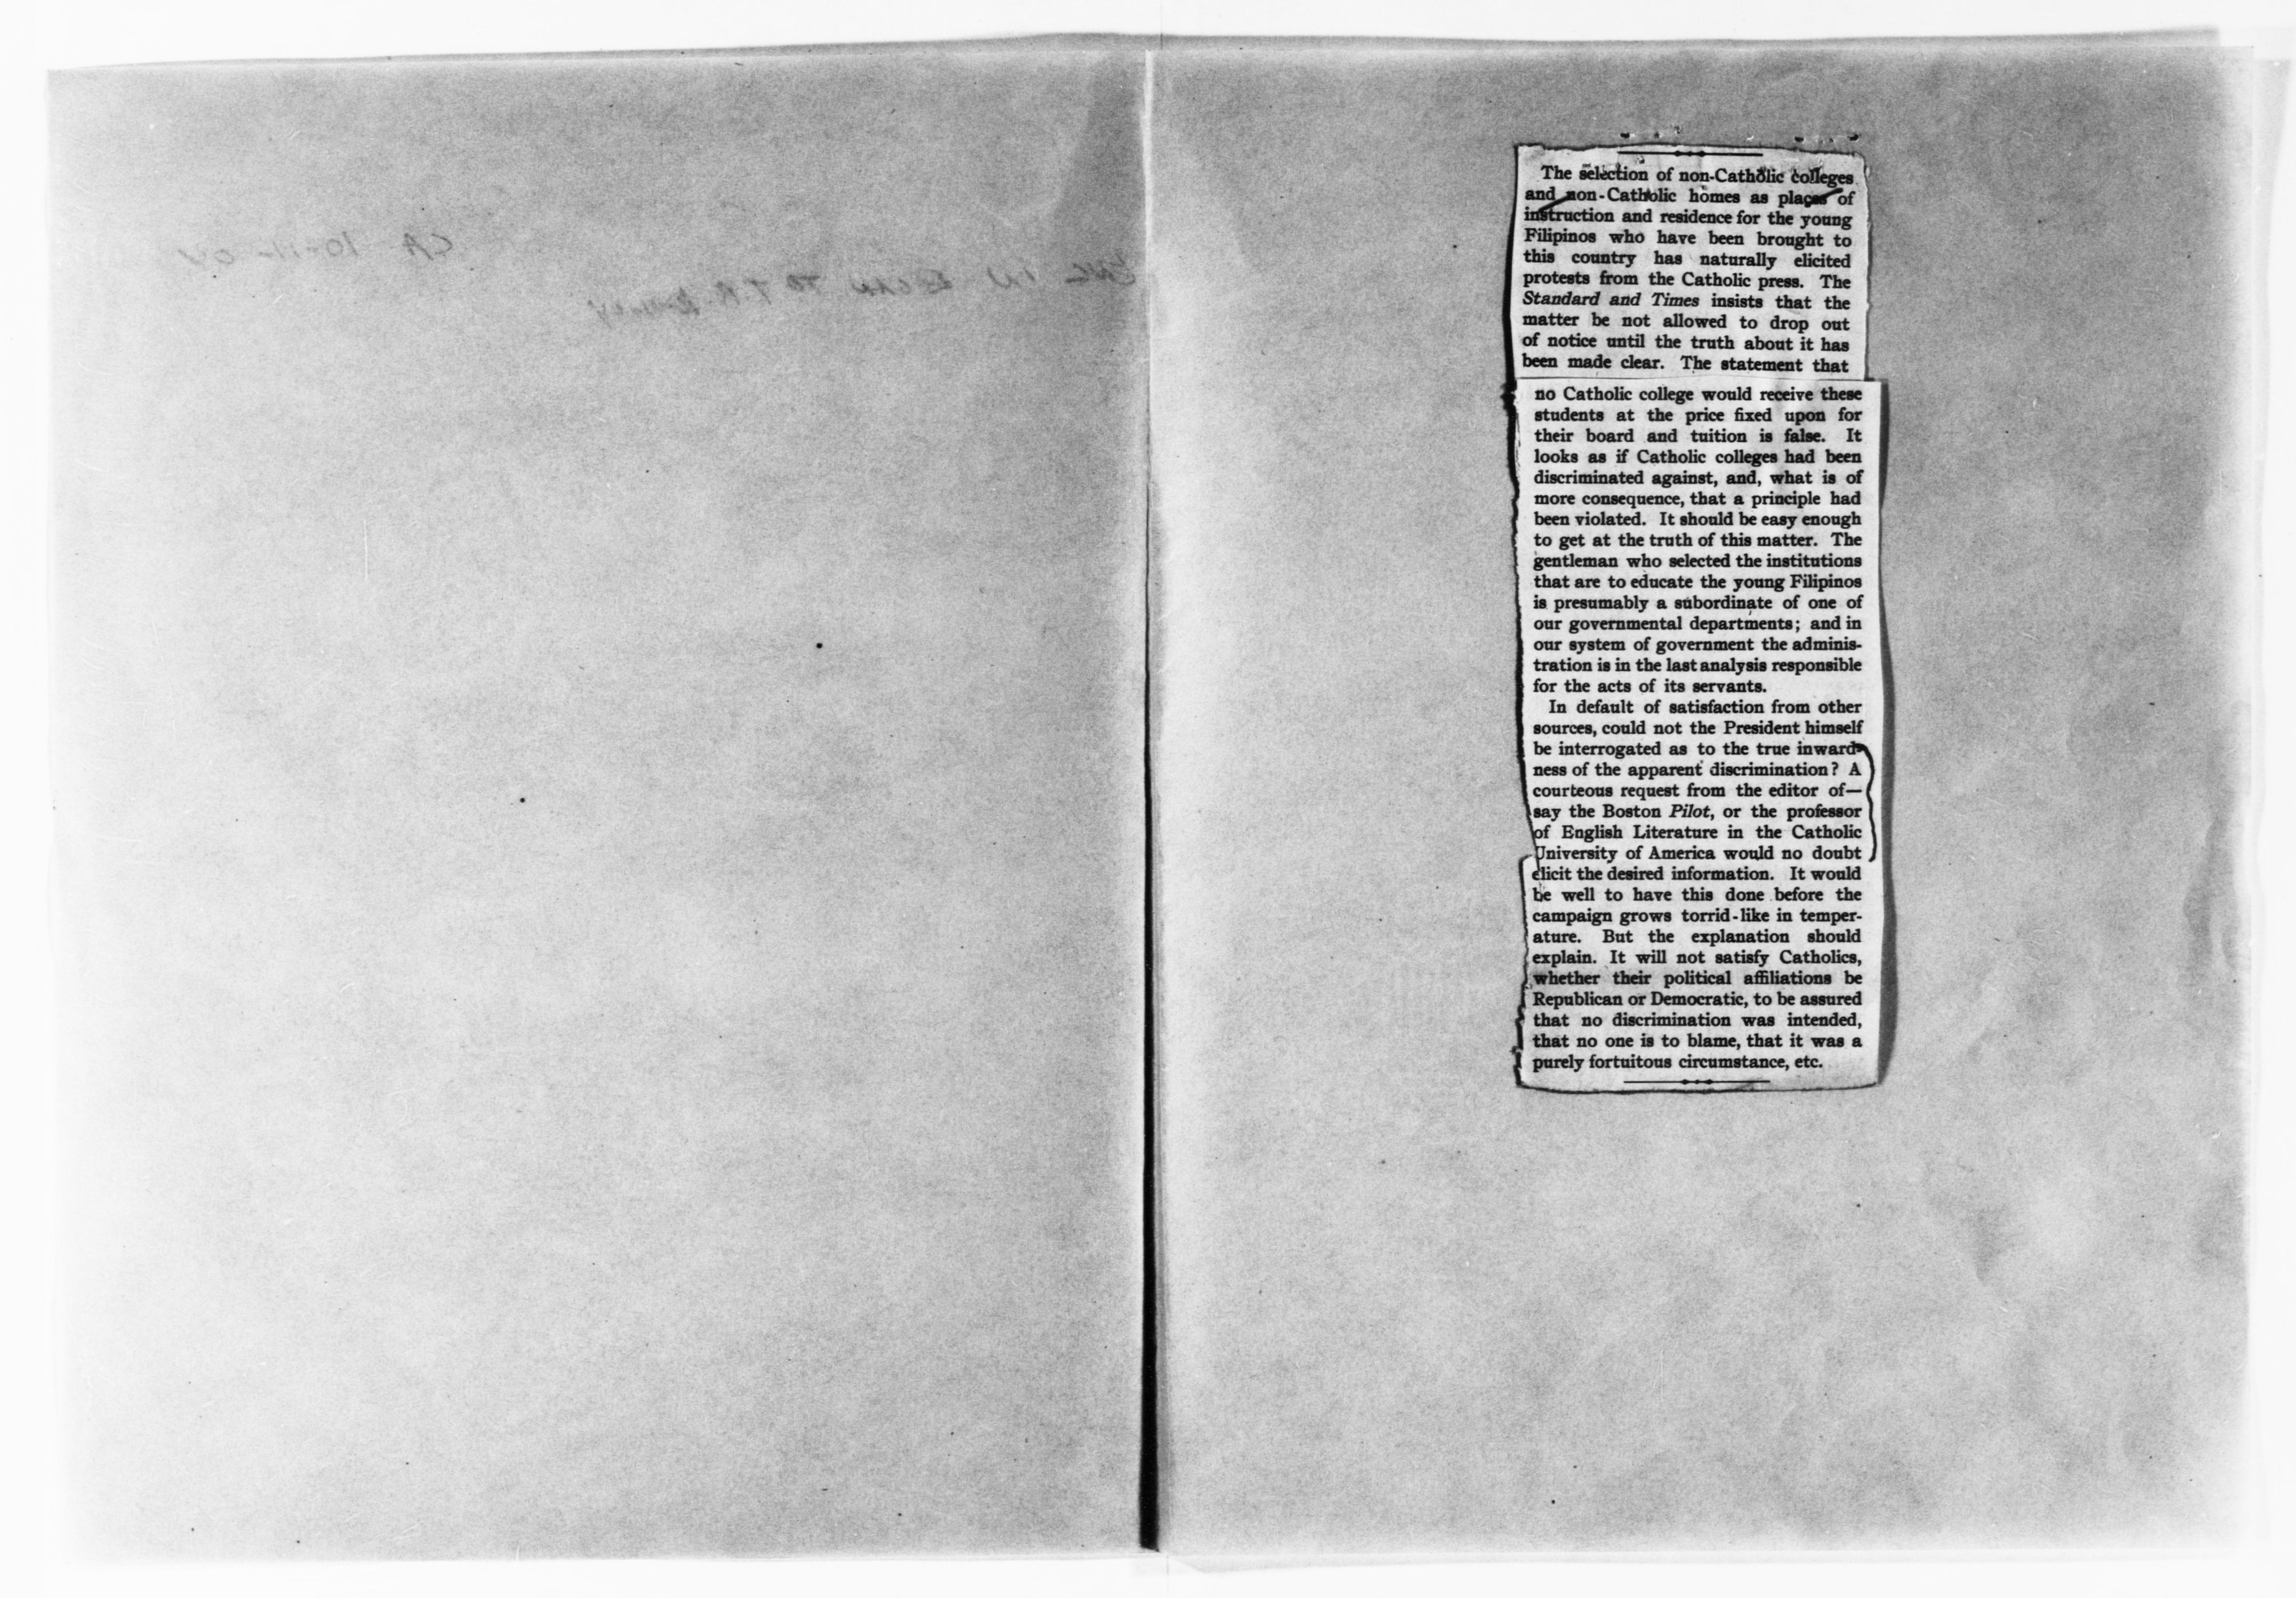 The selection of non-Catholic colleges
and non-Catholic homes as places of
instruction and residence for the young
Filipinos who have been brought to
this country has naturally elicited
protests from the Catholic press. The
Standard and Times insists that the
matter be not allowed to drop out
of notice until the truth about it has
been made clear. The statement that
no Catholic college would receive these
students at the price fixed upon for
their board and tuition is false. It
looks as if Catholic colleges had been
discriminated against, and, what is of
more consequence, that a principle had
been violated. It should be easy enough
to get at the truth of this matter. The
gentleman who selected the institutions
that are to educate the young Filipinos
is presumably a subordinate of one of
our governmental departments; and in
our system of government the adminis-
tration is in the last analysis responsible
for the acts of its servants.
In default of satisfaction from other
sources, could not the President himself
be interrogated as to the true inward-
ness of the apparent discrimination? A
courteous request from the editor of—
say the Boston Pilot, or the professor
of English Literature in the Catholic
University of America would no doubt
elicit the desired information. It would
be well to have this done before the
campaign grows torrid-like in temper-
ature. But the explanation should
explain. It will not satisfy Catholics,
whether their political affiliations be
Republican or Democratic, to be assured
that no discrimination was intended,
that no one is to blame, that it was a
purely fortuitous circumstance, etc.